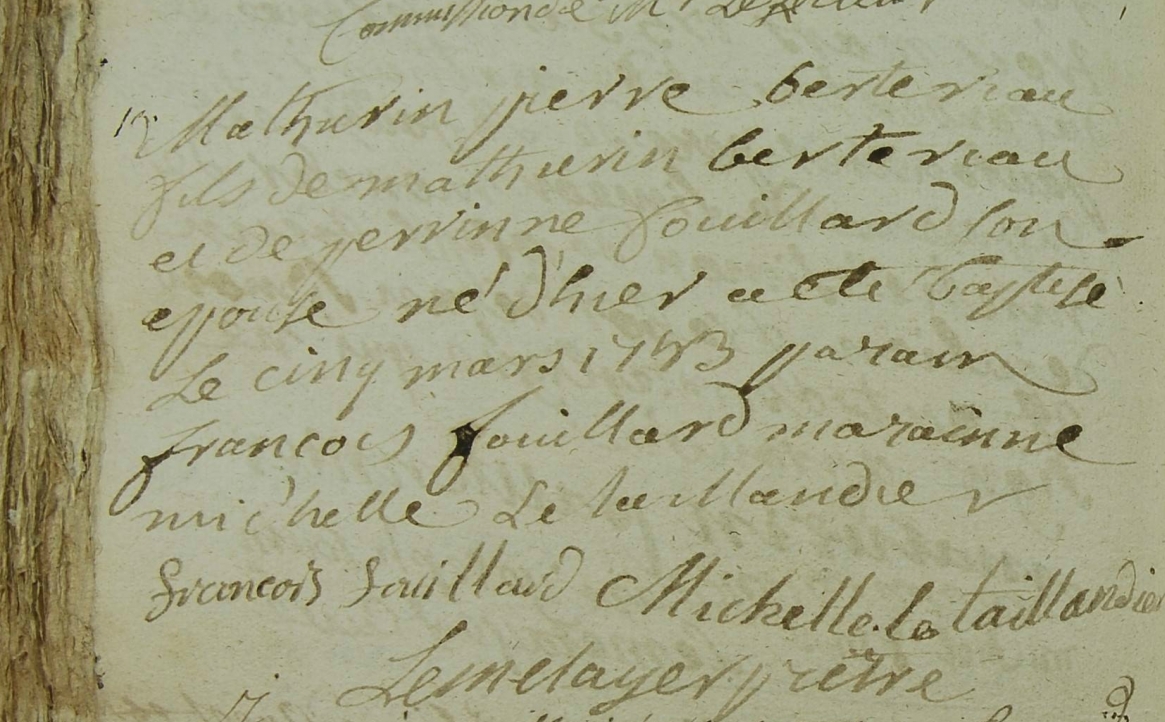 Commission de Mr Le
12 Mathurin pierre berteriau
fils de mathurin berteriau
et de perrinne fouillard son
epouse né d'hier a eté baptisé
Le cinq mars 1783 parain
francois fouillard marainne
michelle Le taillandier
francois fouillard Michelle le taillandier
Lemetayer prêtre